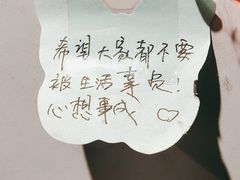 希望大家都不要
被生活辜负!
心想事成♡